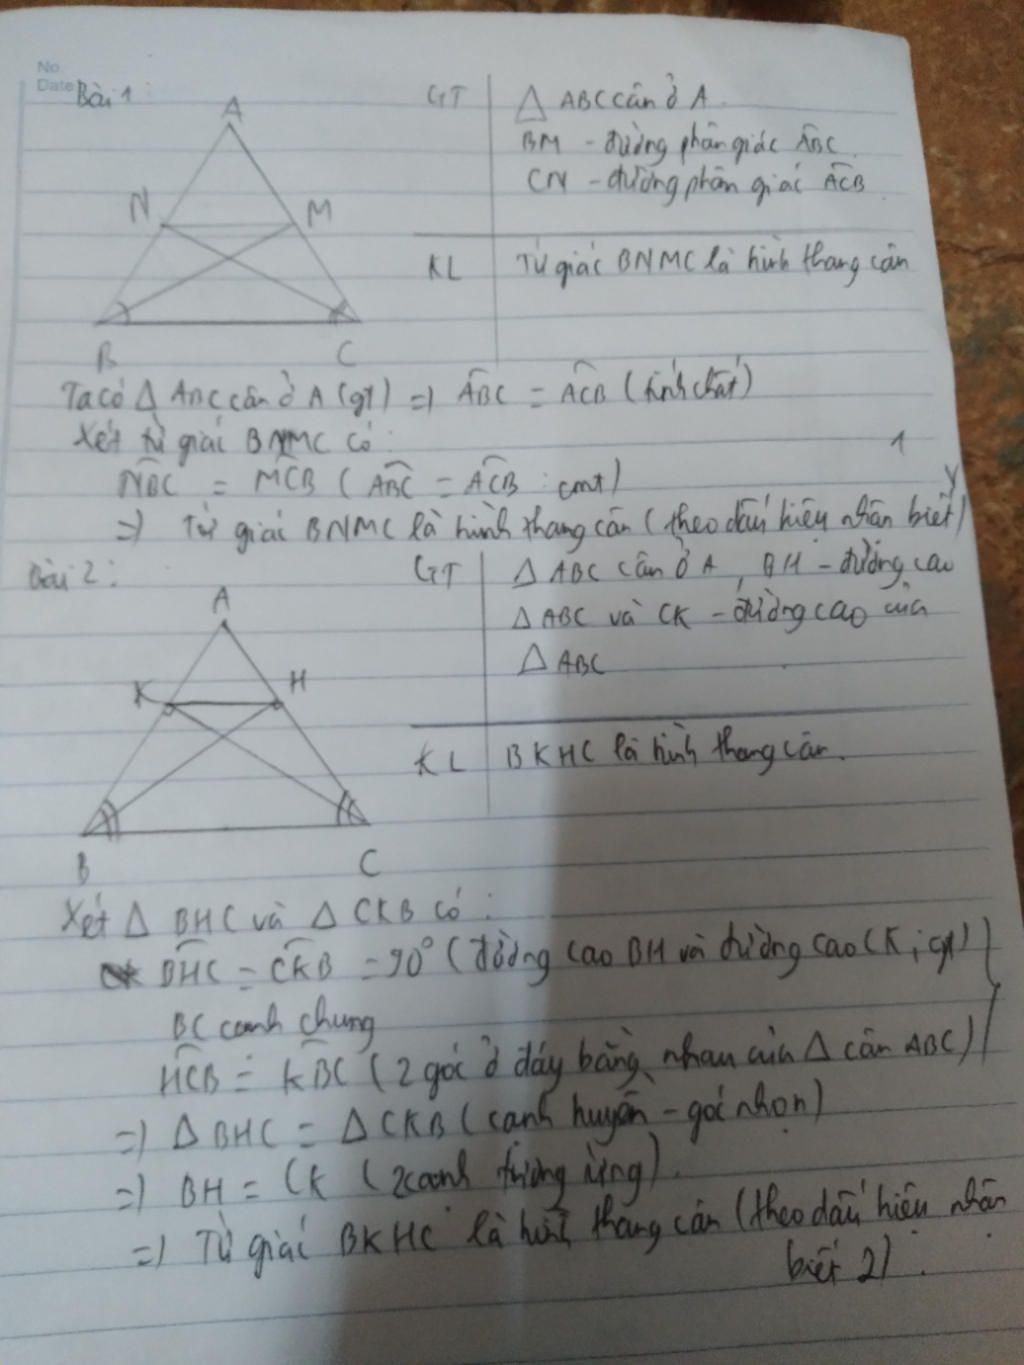 No.
Date
Bài 1:
A
N
M
B
C
GT
△ ABC cân ở A.
BM - đường phân giác ABC.
CN - đường phân giác ACB
KL
Tứ giác BNMC là hình thang cân
Ta có △ ABC cân ở A (gt) => ABC = ACB (tính chất)
Xét tứ giác BNMC có:
1
NBC = MCB (ABC = ACB : cmt)
=> Tứ giác BNMC là hình thang cân (theo dấu hiệu nhận biết)
Bài 2:
A
K
H
B
C
GT
△ ABC cân ở A, BH - đường cao
△ ABC và CK - đường cao của
△ ABC
KL
BKHC là hình thang cân.
Xét △ BHC và △ CKB có:
BHC = CKB = 90° (đường cao BH và đường cao CK; gt)
BC cạnh chung
HCB = KBC (2 góc ở đáy bằng nhau của △ cân ABC)
=> △ BHC = △ CKB (cạnh huyền - góc nhọn)
=> BH = CK (2 cạnh tương ứng).
=> Tứ giác BKHC là hình thang cân (theo dấu hiệu nhận
biết 2).